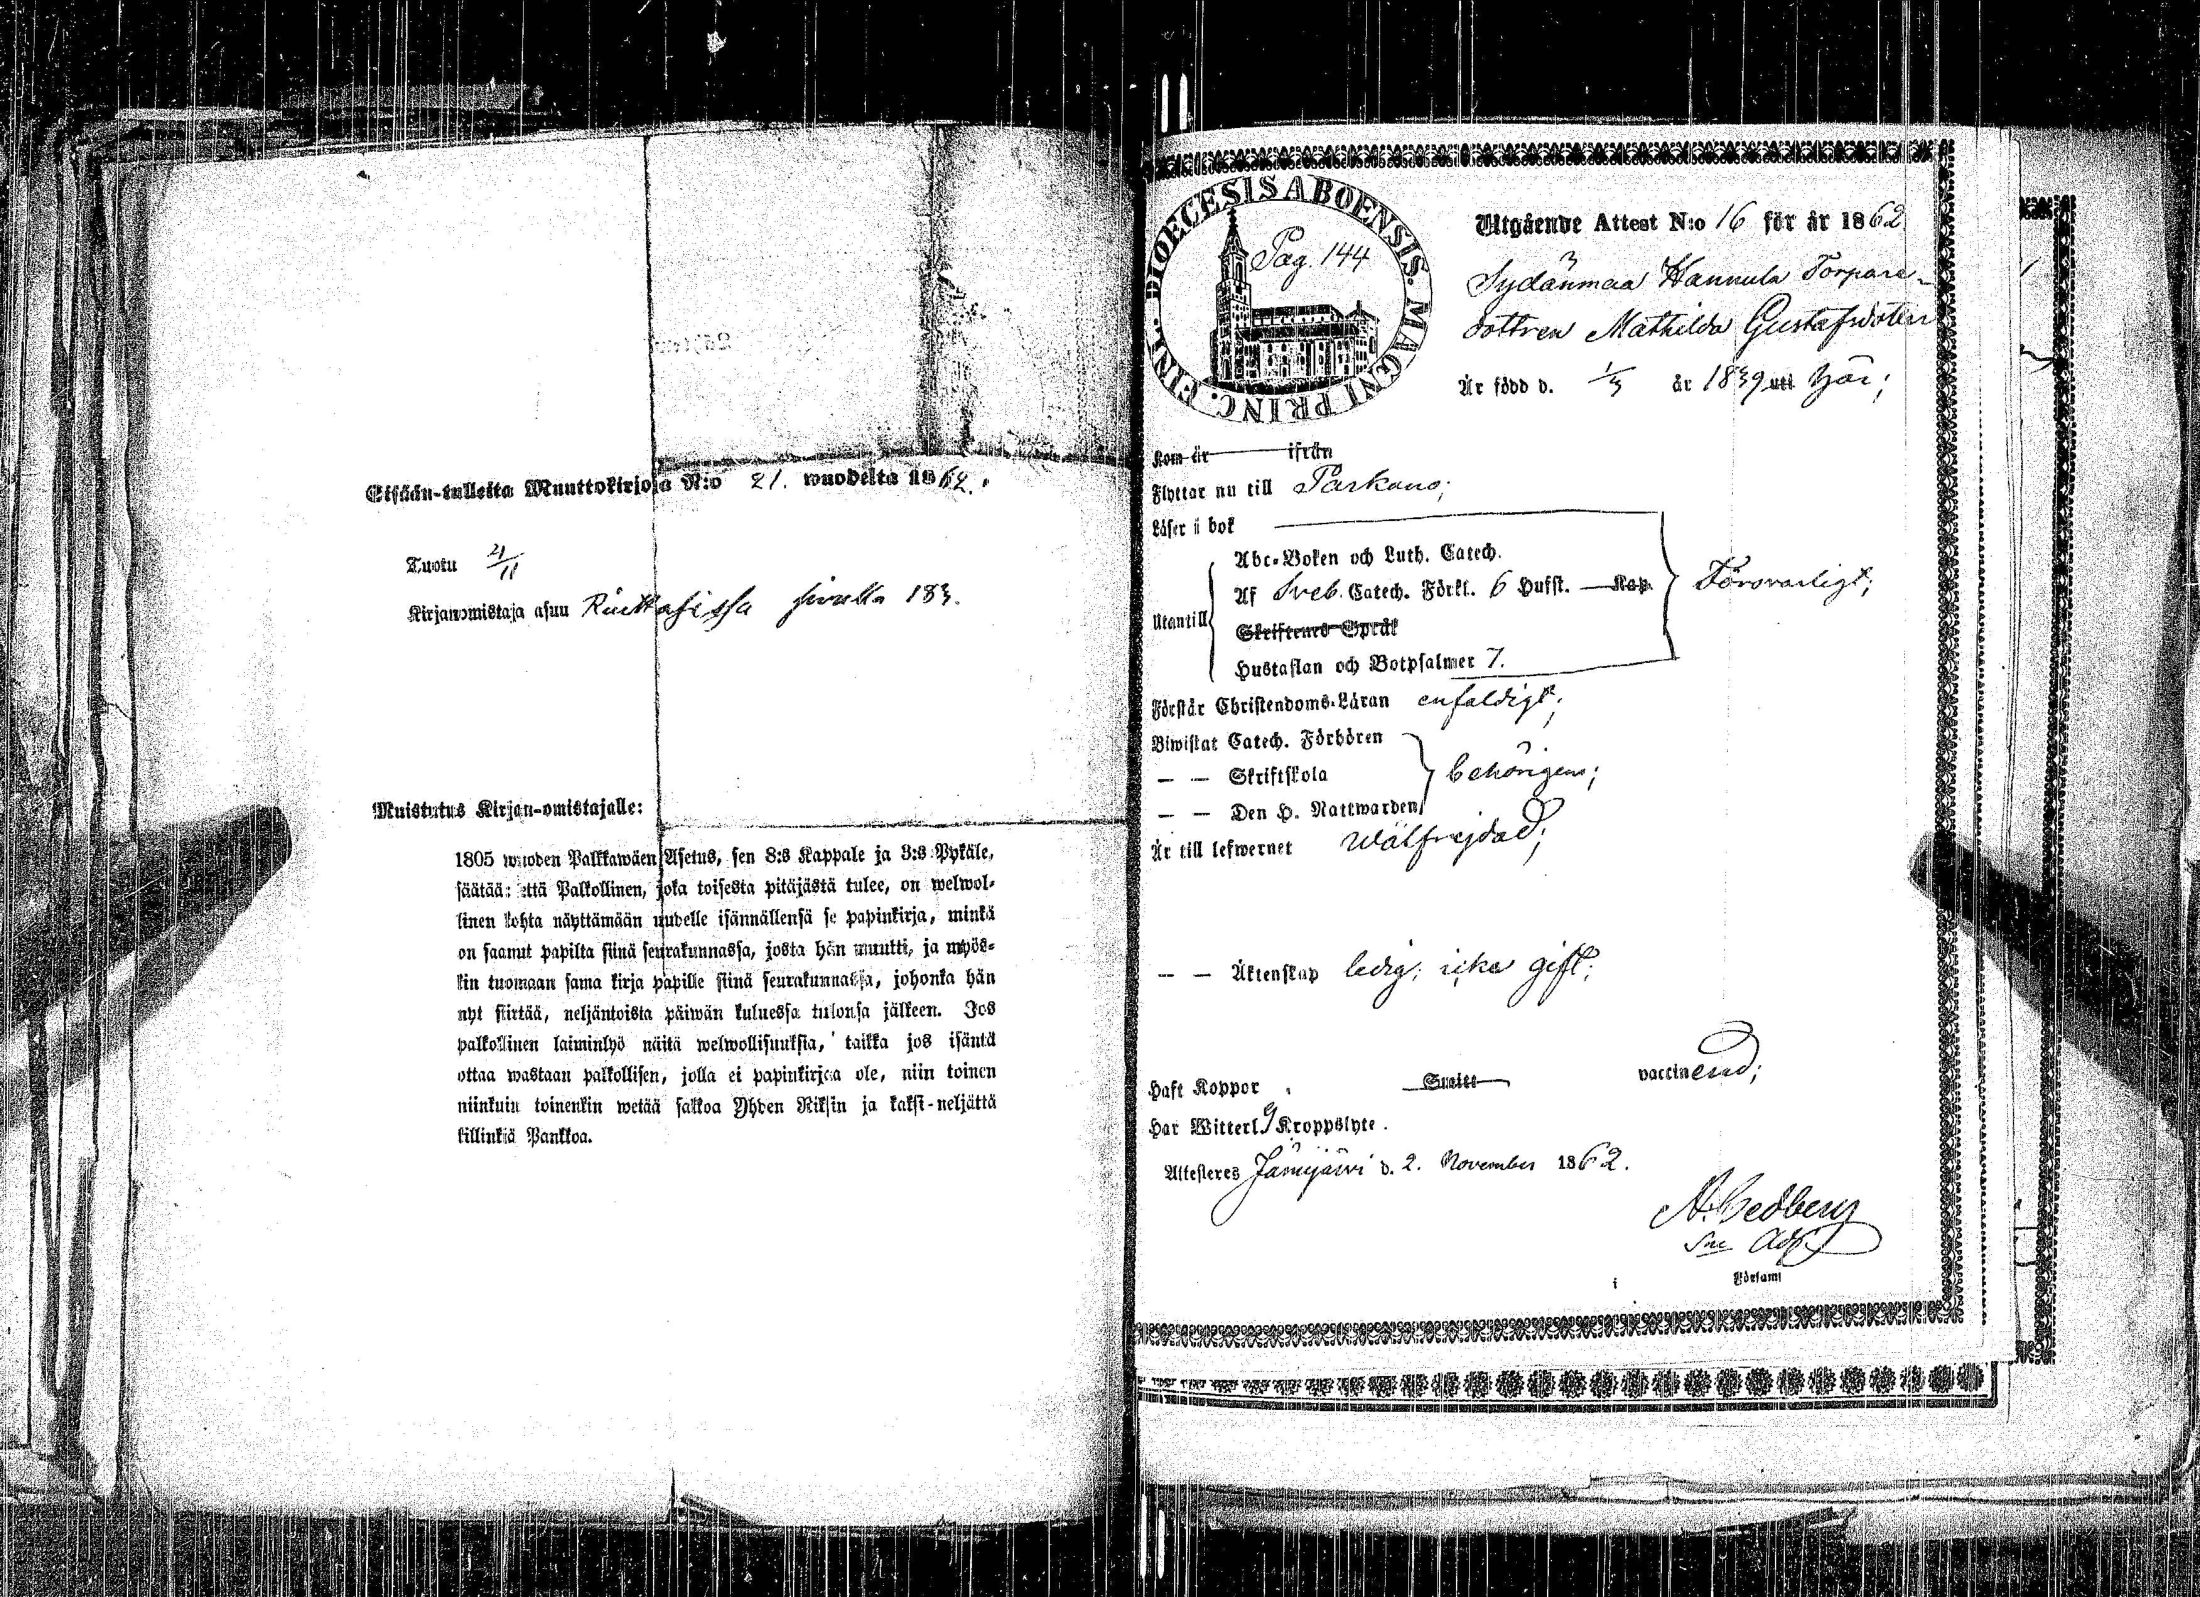 Sisään-tulleita Muuttokirjoja N:o 21. wuodelta 1862.
Tuotu 21/11
Kirjanomistaja asuu sivulla 183.
Muistutus Kirjan-omistajalle:
1805 wuoden Palkkawäen Asetus, sen 8:s Kappale ja 3:s Pykäle,
säätää: että Palkollinen, joka toisesta pitäjästä tulee, on welwol-
linen kohta näyttämään uudelle isännällensä se papinkirja, minkä
on saanut papilta siinä seurakunnassa, josta hän muutti, ja myös-
kin tuomaan sama kirja papille siinä seurakunnassa, johonka hän
nyt siirtää, neljäntoista päiwän kuluessa tulonsa jälkeen. Jos
palkollinen laiminlyö näitä welwollisuuksia, taikka jos isäntä
ottaa wastaan palkollisen, jolla ei papinkirjaa ole, niin toinen
niinkuin toinenkin wetää sakkoa Yhden Riksin ja kaksi-neljättä
killinkiä Pankkoa.
DIOECESIS ABOENSIS. MAGNI PRINC. FINL.
Pag. 144
Utgående Attest N:o 16 för år 1862
Sydänmaa Hannula Torpare-
dottren Mathilda Gustafsdotter
Är född d. 1/3 år 1839 uti här;
Kom år ifrån
Flyttar nu till Parkano;
Läser i bok
Abc-Boken och Luth. Catech.
Utantill Af Sveb. Catech. Förkl. 6 Hufst. Kap. Försvarligt;
Skriftenes Språk
Hustaflan och Botpsalmer 7.
Förstår Christendoms-Läran enfaldigt;
Biwistat Catech. Förhören
— — Skriftskola behörigen;
— — Den H. Nattwarden
Är till lefwernet wälfrejdad;
— — Äktenskap ledig; icke gift;
Haft Koppor Smitt vaccinerad;
Har Witterl. Kroppslyte.
Attesteres Jämijärvi d. 2. November 1862.
A. Hedberg
i Församl